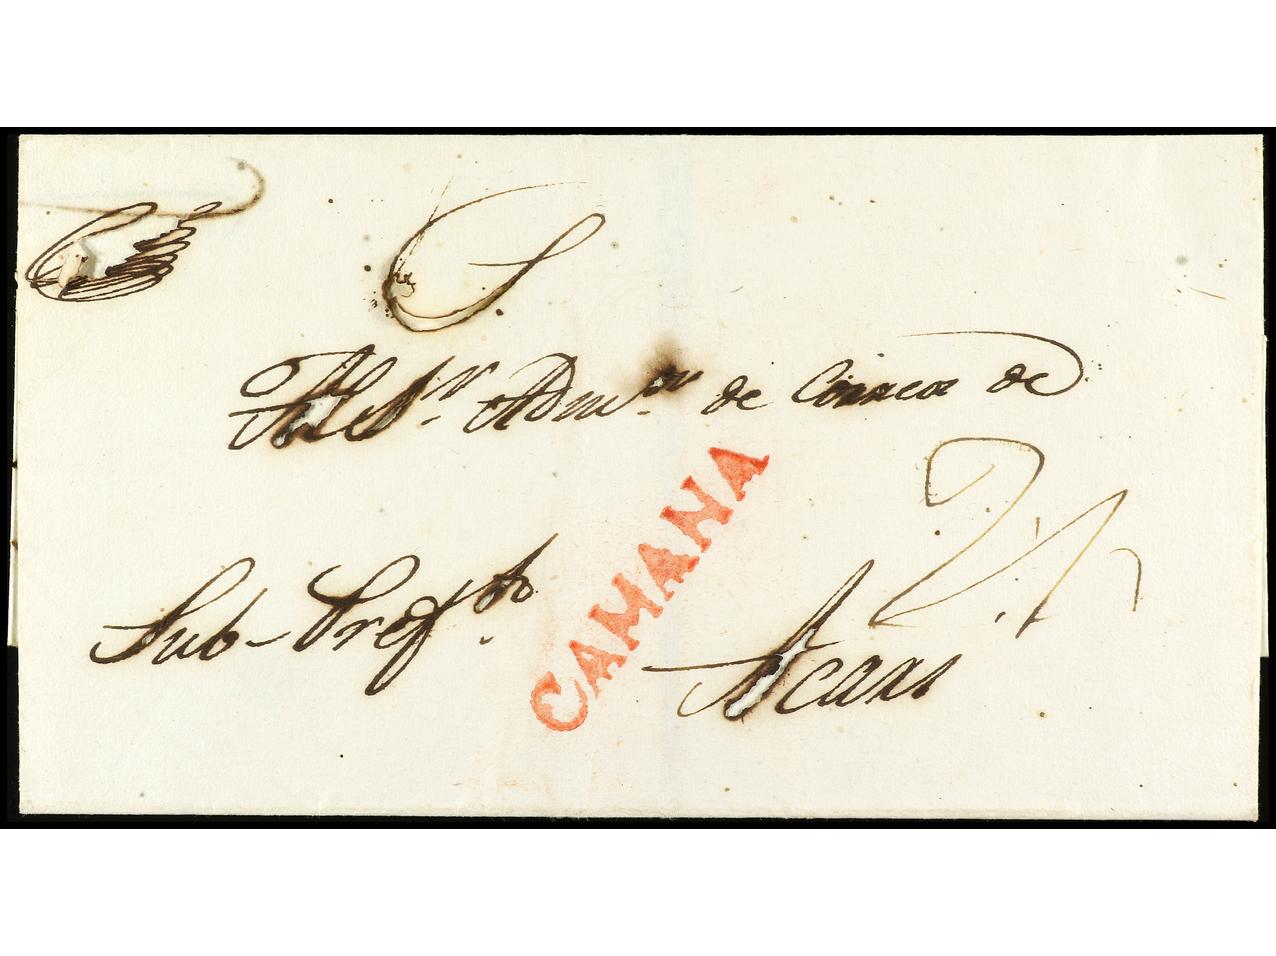 Al Sr. Admor. de Correos de
CAMANA
Sub-Prefto.
Acari